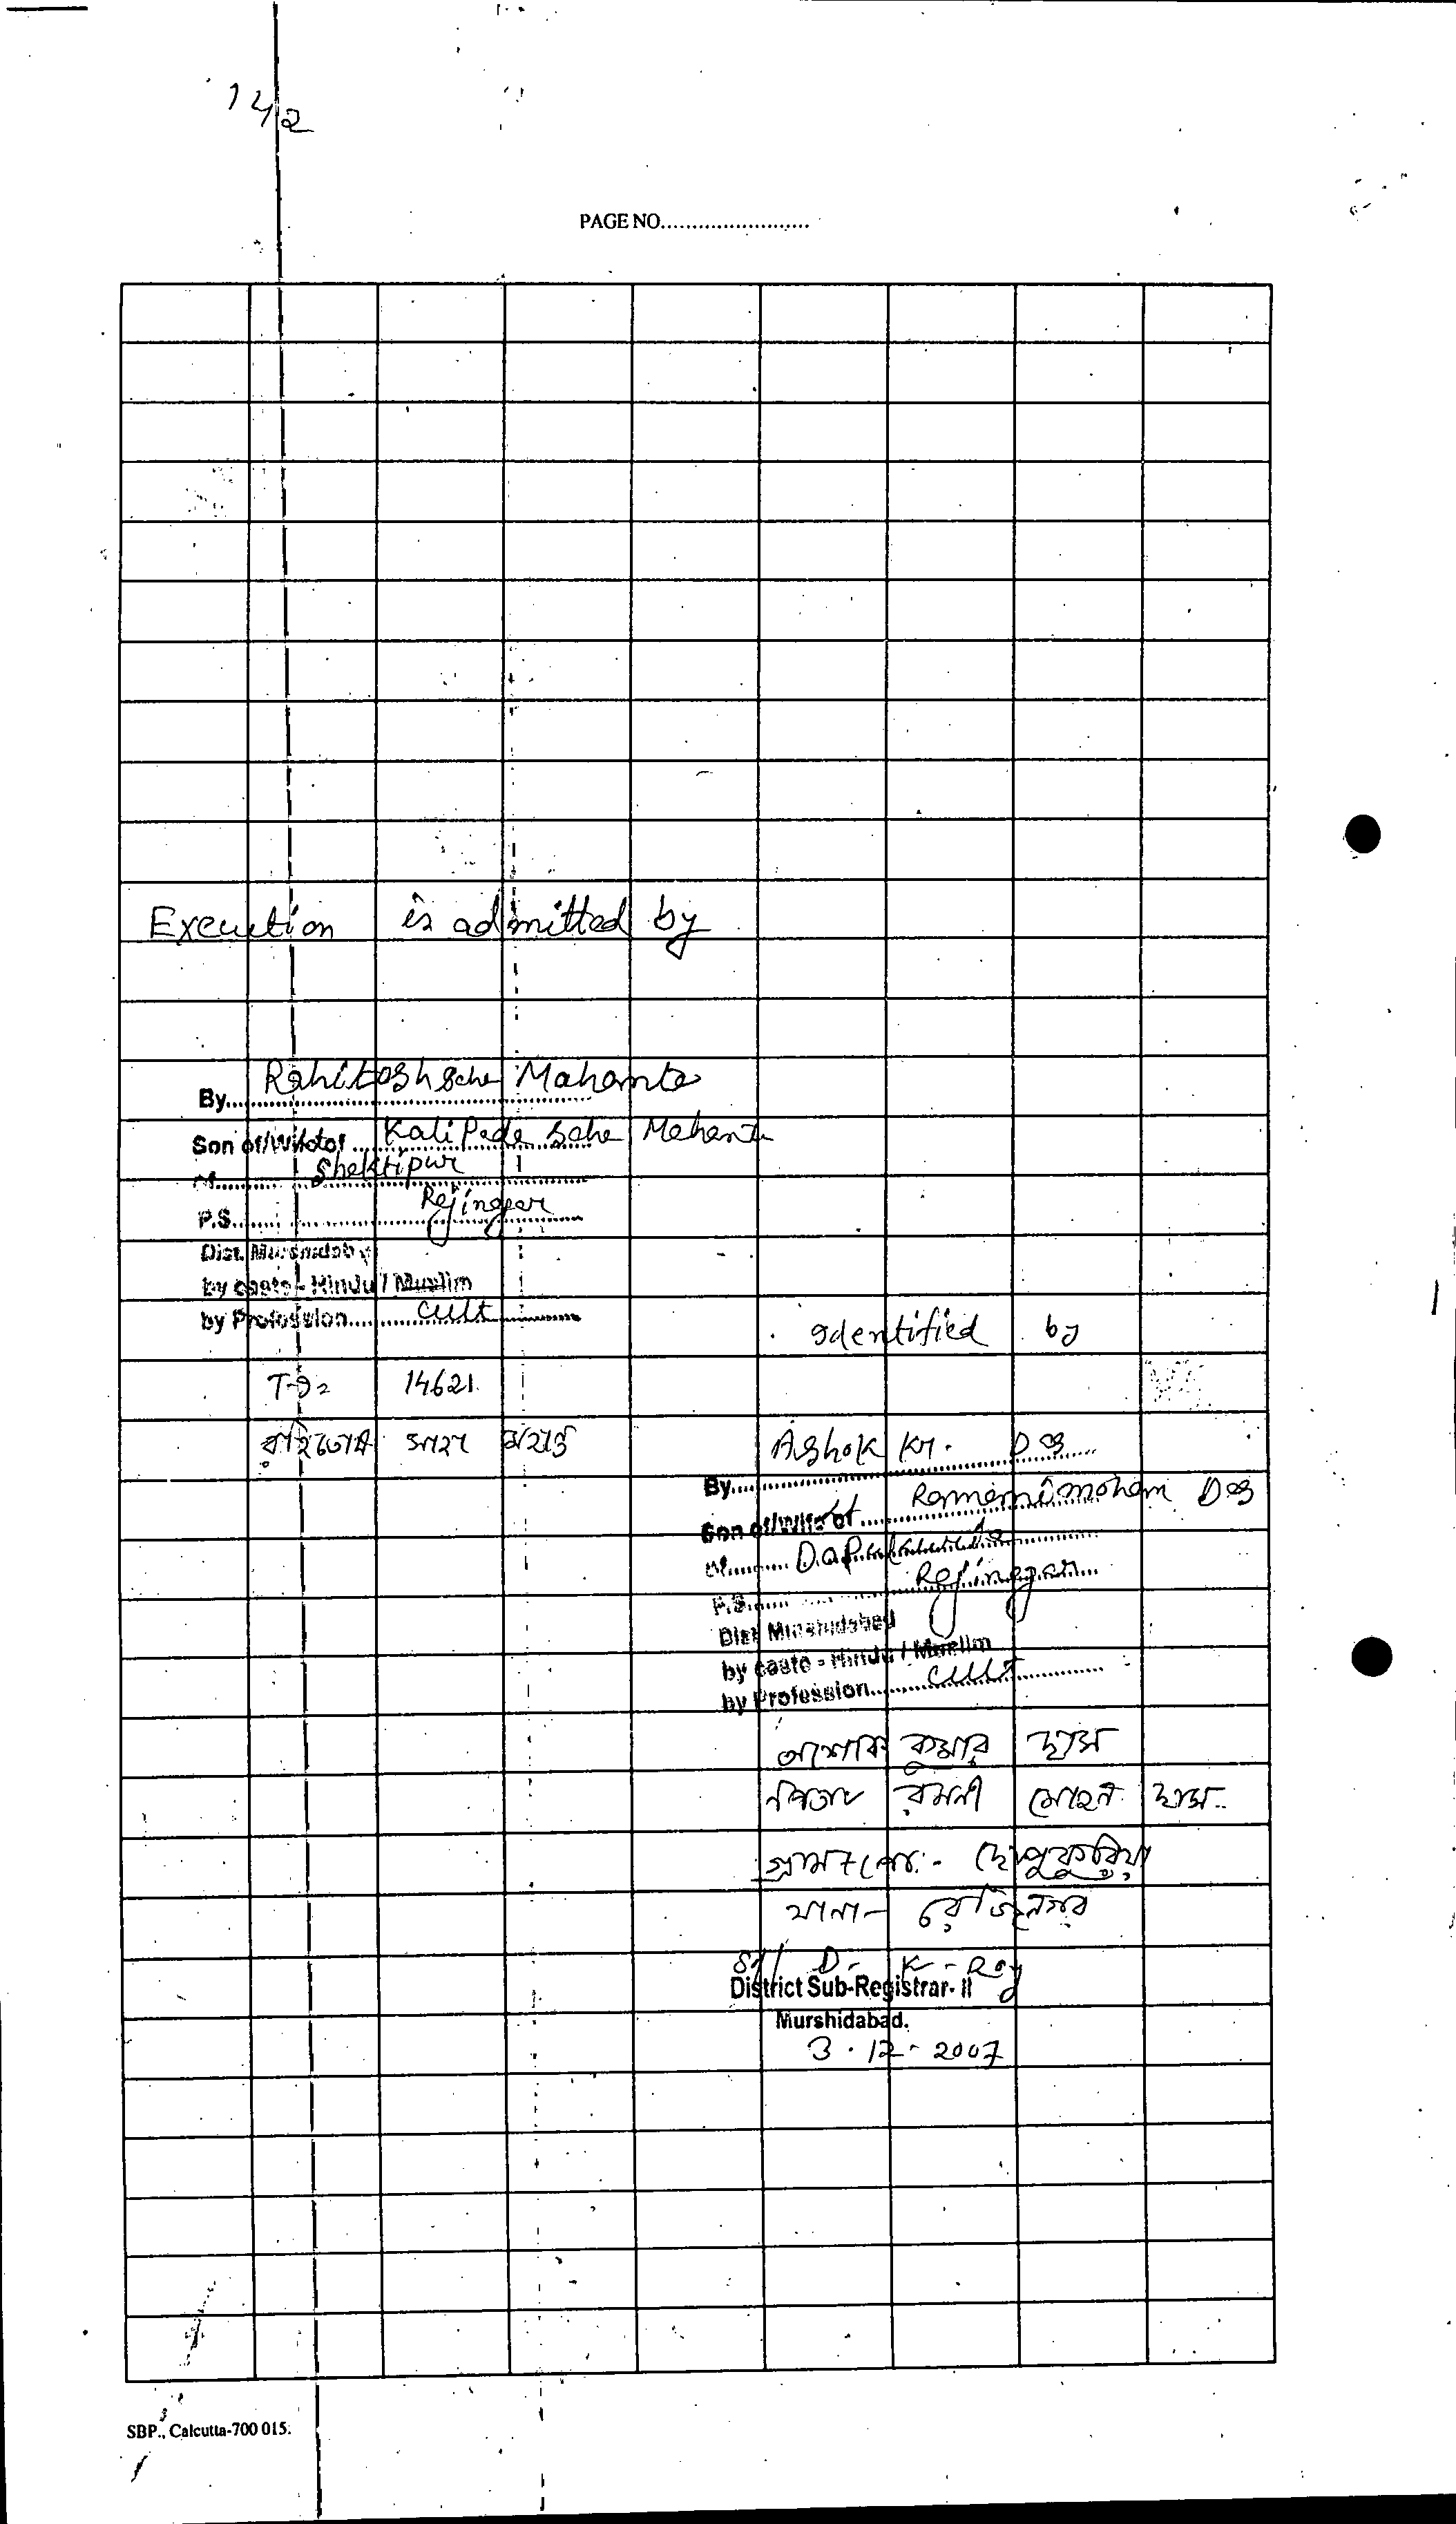 142
PAGE NO........................
Execution is admitted by
By Rahitosh Saha Mahanta
Son of/Wife of Kali Pada Saha Mahanta
of Shaktipur
P.S. Rejinagar
Dist. Murshidabad
by caste - Hindu / Muslim
by Profession Cult
14621
রহিতোষ সাহা মহান্ত
Identified by
By Ashok Kr. Das
Son of/Wife of Lt Ramanimohan Das
of
P.S. Rejinagar
Dist Murshidabad
by caste - Hindu / Muslim
by Profession Cult
অশোক কুমার দাস
পিতা রমনী মোহন দাস
গ্রাম+পোঃ- দোপুকুরিয়া
থানা- রেজিনগর
Sd/ D. K. Roy
District Sub-Registrar- II
Murshidabad.
3.12.2007
SBP., Calcutta-700 015.